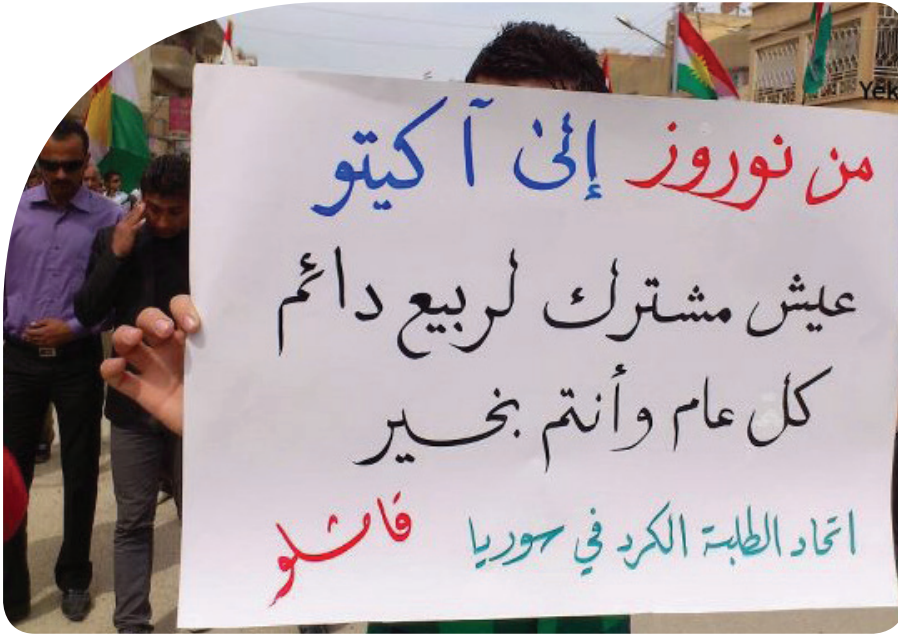 من نوروز إلى آكيتو
عيش مشترك لربيع دائم
كل عام وأنتم بخير
اتحاد الطلبة الكرد في سوريا قامشلو
Yek